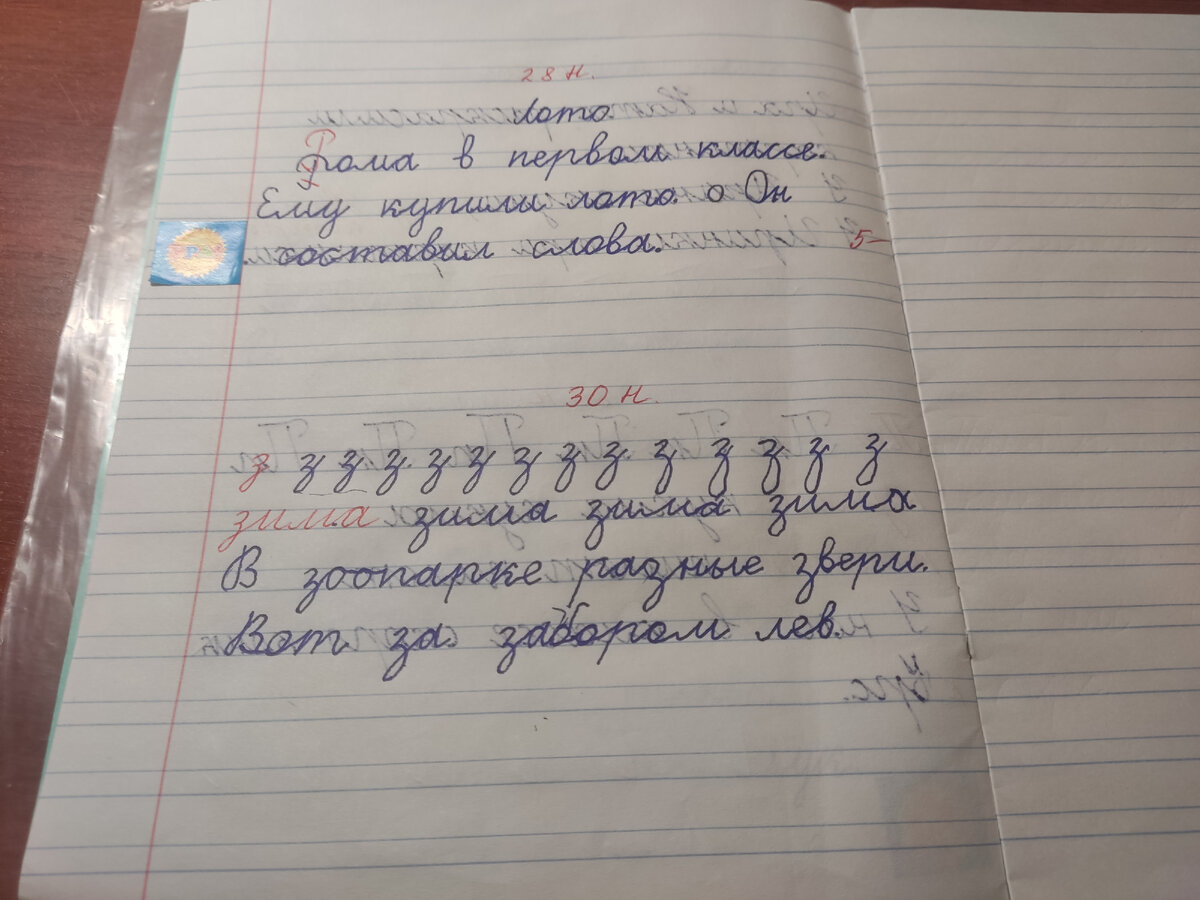 28 н.
Лото
Рома в первом классе.
Ему купили лото. о Он
составил слова.
5-
30 н.
з з з з з з з з з з з з з з
зима зима зима зима
В зоопарке разные звери.
Вот за забором лев.